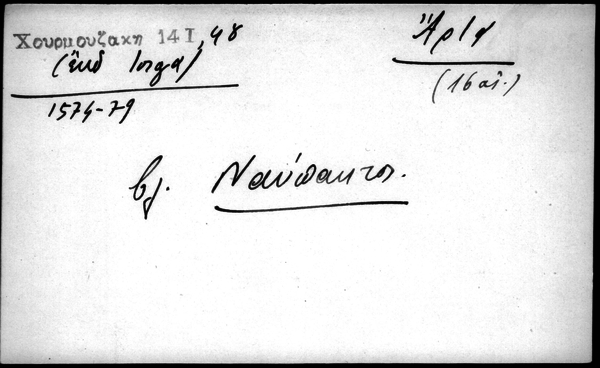 Χουρμουζακη 14 I, 48
(ἔκδ Iorga)
1574-79
Ἄρτα
(16 αἰ.)
βλ. Ναύπακτος.